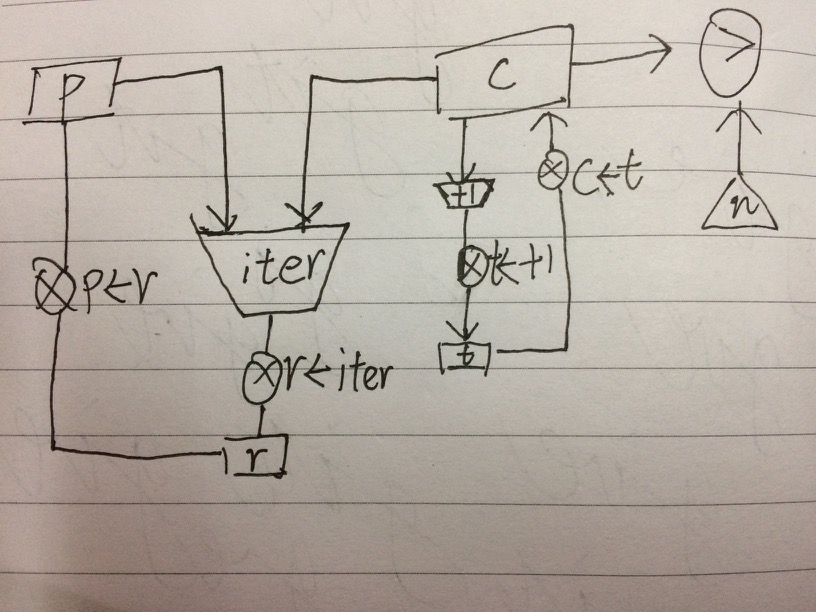 p
c
>
+1
c←t
n
iter
p←r
t←+1
t
r←iter
r